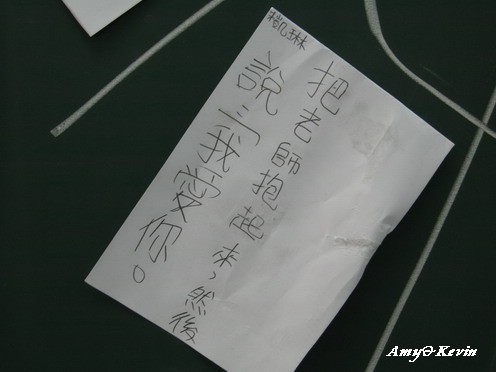 把老師抱起來,然後
說:「我愛你。
Amy&Kevin